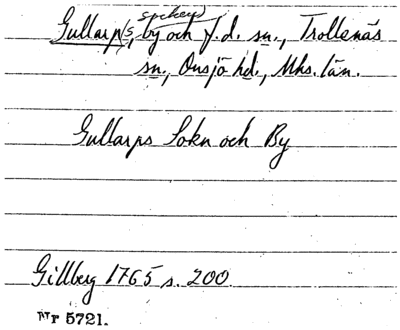 sockeng
Gullarp/s, by och f.d. sn., Trollenäs
sn., Onsjö hd., Mhs. län.
Gullarps Sokn och By
Gillberg 1765 s. 200
Nr 5721.